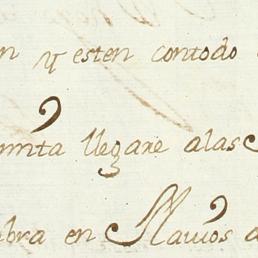 n y esten contodo
mita llegare alas
bra en Navios a